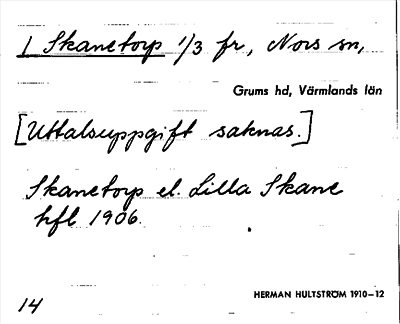 1 Skanetorp 1/3 fr, Nors sn,
Grums hd, Värmlands län
[Uttalsuppgift saknas.]
Skanetorp el. Lilla Skane
hfl 1906.
14
HERMAN HULTSTRÖM 1910–12